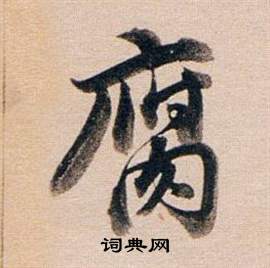 腐
词典网